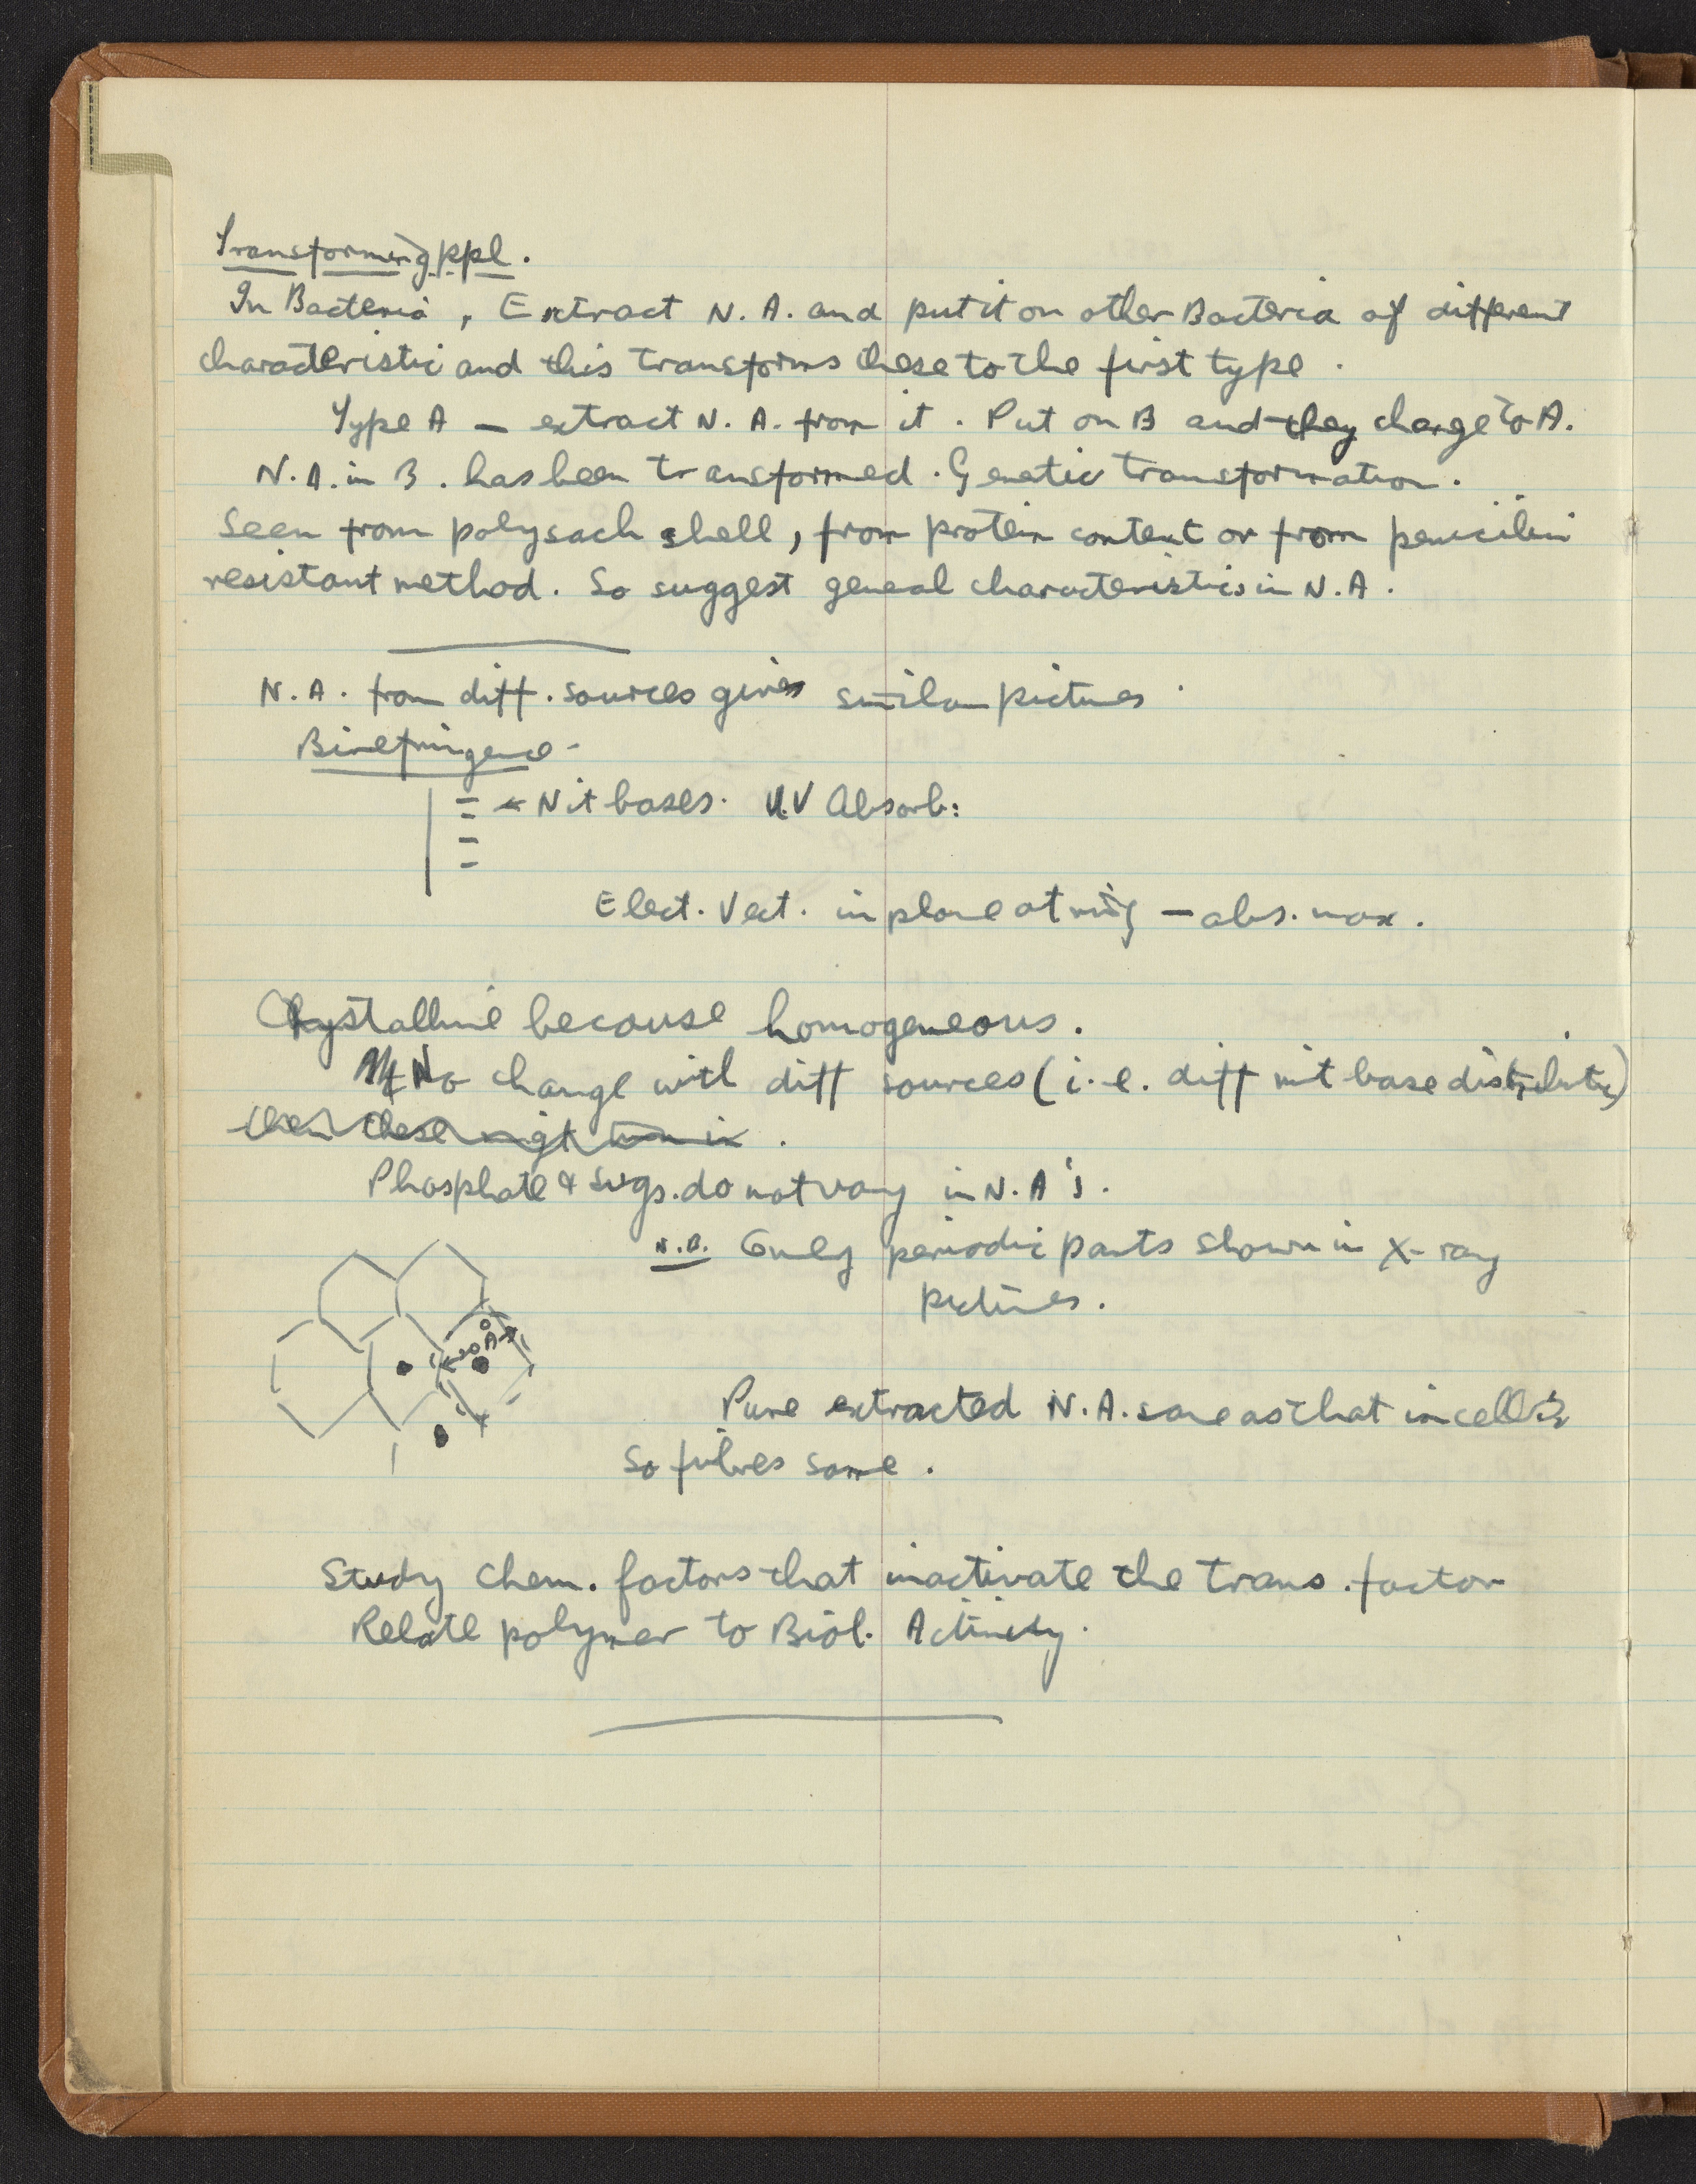 Transforming ppl.
In Bacteria, Extract N. A. and put it on other Bacteria of different
characteristic and this transforms these to the first type.
Type A — extract N. A. from it. Put on B and they change to A.
N. A. in B. has been transformed. Genetic transformation.
Seen from polysach shell, from protein content or from penicilin
resistant method. So suggest general characteristics in N. A.
N. A. from diff. sources gives similar pictures.
Birefringence -
← Nit bases. U.V Absorb:
Elect. Vect. in plane of ring — abs. max.
Crystalline because homogeneous.
No change with diff sources (i.e. diff nit base distribute)
then these might
Phosphate & sugs. do not vary in N. A's.
N.B. Only periodic parts shown in X-ray
pictures.
←20Å→
Pure extracted N. A. same as that in cells
so fibres same.
Study chem. factors that inactivate the trans. factor
Relate polymer to Biol. Activity.